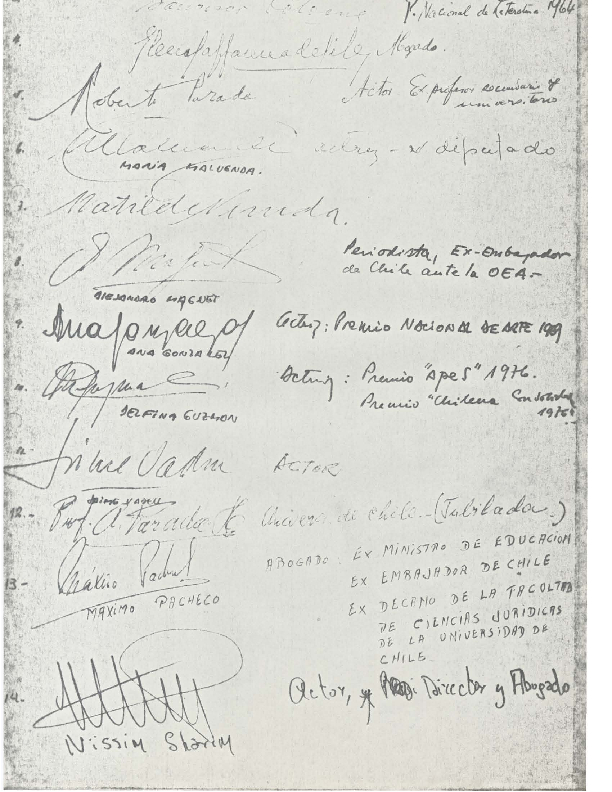 P. Nacional de Literatura 1964
Abogado.
5. Roberto Parada Actor Ex profesor secundario y
universitario
6. actriz - ex diputado
MARÍA MALUENDA.
7. Matilde Neruda.
8. Periodista, Ex-Embajador
de Chile ante la OEA-
ALEJANDRO MAGNET
9. Ana González Actriz: PREMIO NACIONAL DE ARTE 1969
ANA GONZALEZ
Actriz: Premio "APES" 1976.
Premio "Chilena Consolidada
1976"
DELFINA GUZMAN
11.- Jaime Vadell ACTOR
JAIME VADELL
12.- Prof. A. Parada Univers. de Chile - (Jubilada.)
13- Máximo Pacheco ABOGADO: EX MINISTRO DE EDUCACION
EX EMBAJADOR DE CHILE
MAXIMO PACHECO
EX DECANO DE LA FACULTAD
DE CIENCIAS JURÍDICAS
DE LA UNIVERSIDAD DE
CHILE
14. Actor, Director y Abogado
Nissim Sharim